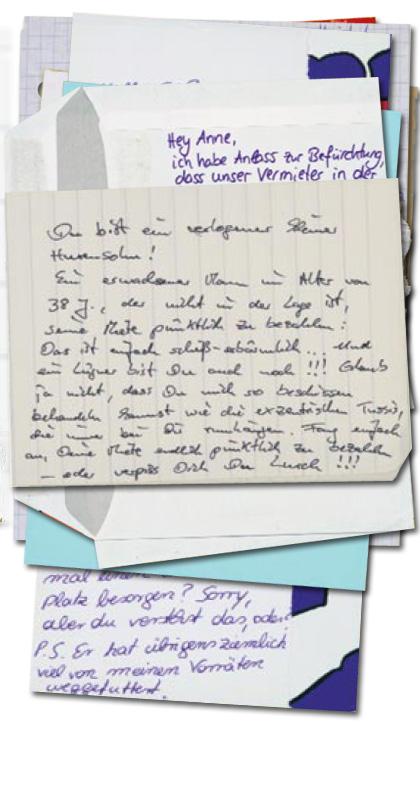 Hey Anne,
ich habe Anlass zur Befürchtung,
dass unser Vermieter in der
Du bist ein verlogener kleiner
Hurensohn!
Ein erwachsener Mann im Alter von
38 J., der nicht in der Lage ist,
seine Miete pünktlich zu bezahlen:
Das ist einfach scheiß-erbärmlich... Und
ein Lügner bist Du auch noch!!! Glaub
ja nicht, dass Du mich so beschissen
behandeln kannst wie die exzentrischen Tussis,
die immer bei Dir rumhängen. Fang einfach
an, Deine Miete endlich pünktlich zu bezahlen
– oder verpiss Dich Du Lusch!!!
mal einen
Platz besorgen? Sorry,
aber du verstehst das, oder?
P.S. Er hat übrigens ziemlich
viel von meinen Vorräten
weggefuttert.